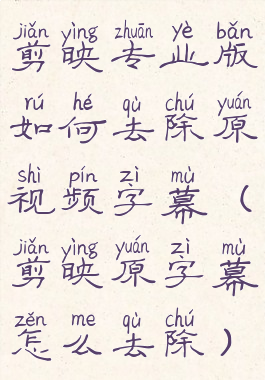 jiǎn yìng zhuān yè bǎn
剪映专业版
rú hé qù chú yuán
如何去除原
shì pín zì mù
视频字幕（
jiǎn yìng yuán zì mù
剪映原字幕
zěn me qù chú
怎么去除）